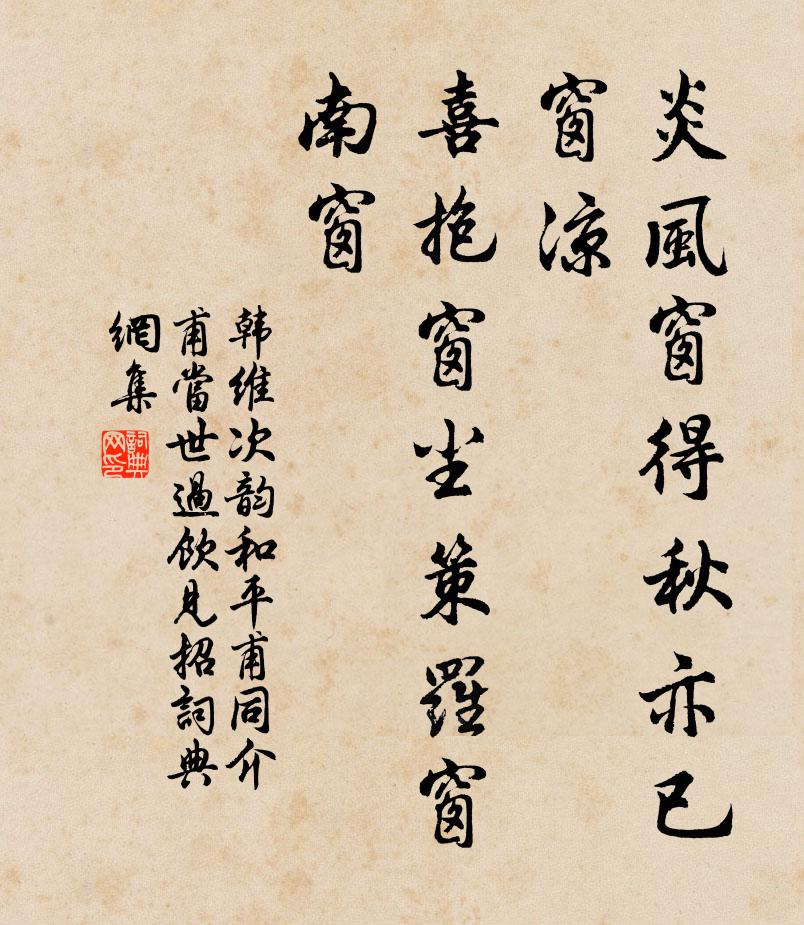 炎風窗得秋亦已
窗涼
喜抱窗坐策羅窗
南窗
韩維次韵和平甫同介
甫當世過飲見招詞典
網集
詞典
网印